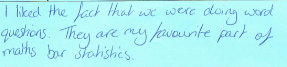 I liked the fact that we were doing word
questions. They are my favourite part of
maths bar statistics.